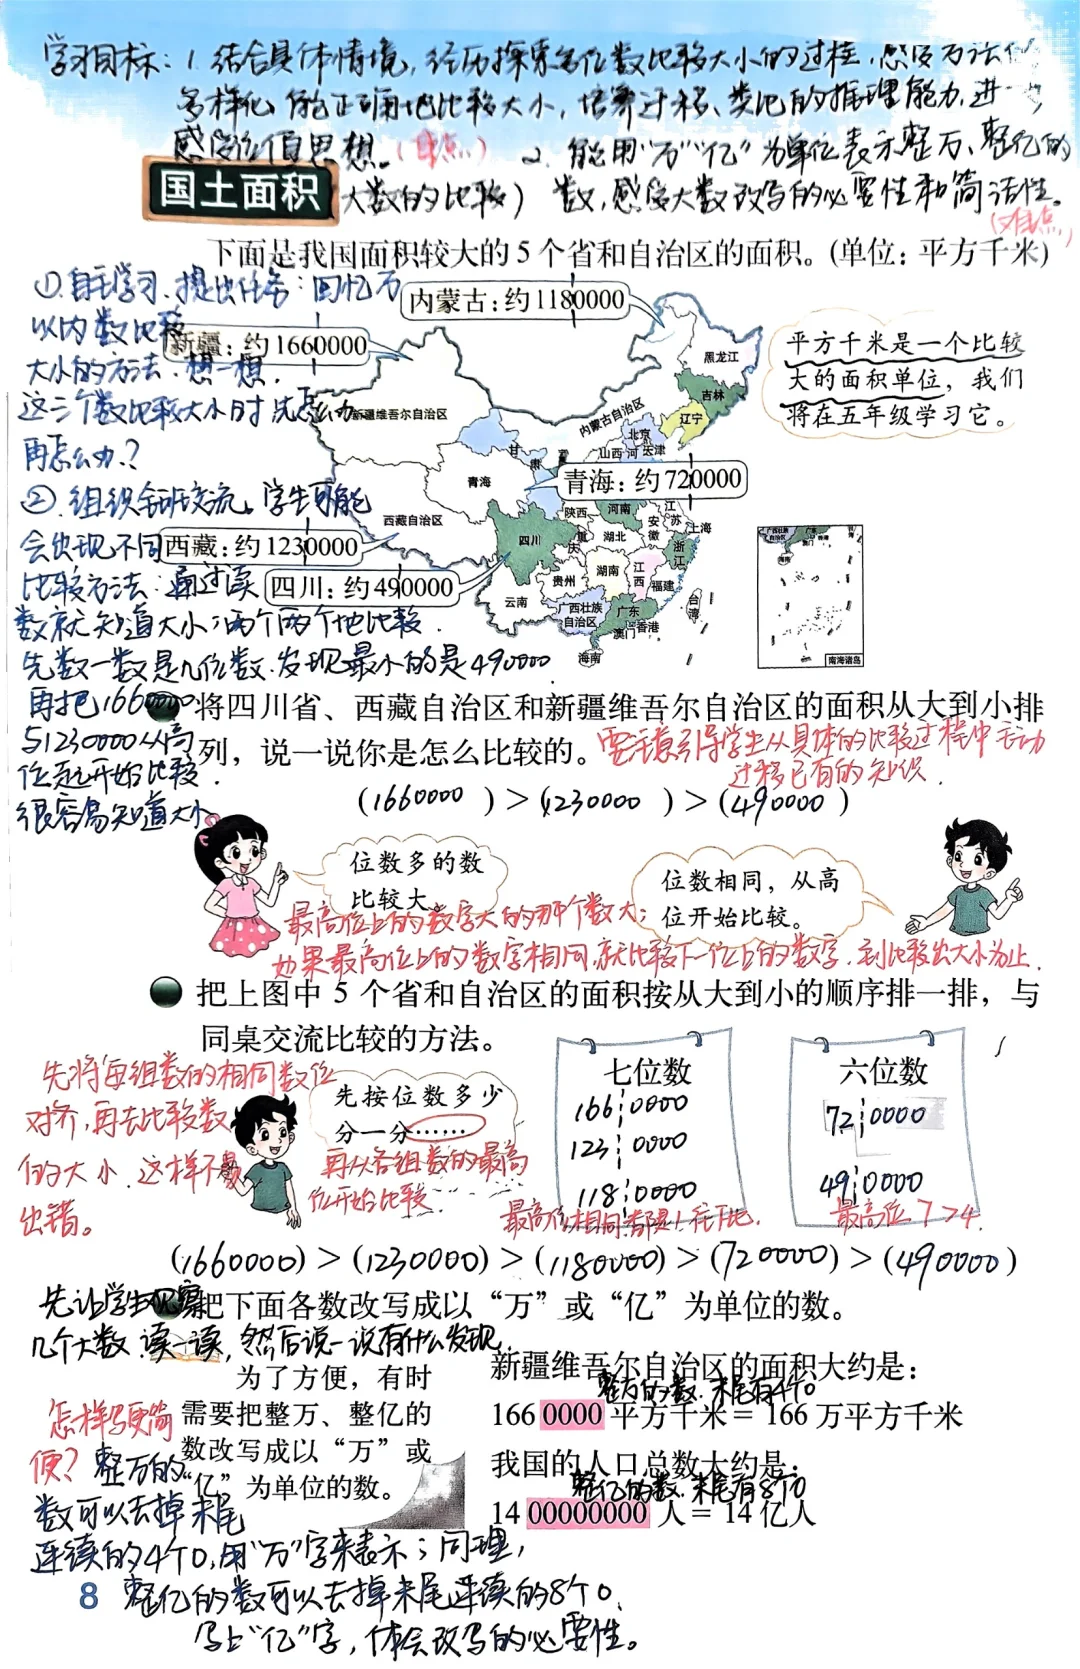 学习目标：1.结合具体情境，经历探索多位数比较大小的过程，感受方法的
多样化，能正确地比较大小，培养迁移、类比的推理能力，进一步
感受位值思想。（重点） 2.能用“万”“亿”为单位表示整万、整亿的
国土面积
（大数的比较） 数，感受大数改写的必要性和简洁性。
（难点）
下面是我国面积较大的 5 个省和自治区的面积。(单位：平方千米)
①.自主学习.提出任务：回忆万
以内数比较
大小的方法.想一想.
这三个数比较大小时先怎么办
再怎么办？
②.组织全班交流。学生可能
会出现不同
比较方法：通过读
数就知道大小；两个两个地比较.
先数一数是几位数.发现最小的是490000
再把1660000
与1230000从高
位起开始比较.
很容易知道大小
内蒙古：约1180000
新疆：约1660000
青海：约720000
西藏：约1230000
四川：约490000
平方千米是一个比较
大的面积单位，我们
将在五年级学习它。
黑龙江
吉林
辽宁
内蒙古自治区
新疆维吾尔自治区
北京
天津
山西
河
甘
肃
青海
西藏自治区
陕西
河南
江
苏
安
徽
上海
四川
重
庆
湖北
浙
江
贵州
湖南
江
西
福建
云南
广西壮族
自治区
广东
台
湾
澳门
香港
海南
南海诸岛
将四川省、西藏自治区和新疆维吾尔自治区的面积从大到小排
列，说一说你是怎么比较的。
要注意引导学生从具体的比较过程中主动
迁移已有的知识.
(1660000)>(1230000)>(490000)
位数多的数
比较大。
位数相同，从高
位开始比较。
最高位上的数字大的那个数大；
如果最高位上的数字相同，就比较下一位上的数字，到比较出大小为止.
把上图中 5 个省和自治区的面积按从大到小的顺序排一排，与
同桌交流比较的方法。
先将每组数的相同数位
对齐，再去比较数
的大小.这样不易
出错。
先按位数多少
分一分……
再从各组数的最高
位开始比较.
七位数
166¦0000
123¦0000
118¦0000
最高位相同都是1，往下比.
六位数
72¦0000
49¦0000
最高位 7>4.
(1660000)>(1230000)>(1180000)>(720000)>(490000)
把下面各数改写成以“万”或“亿”为单位的数。
先让学生观察
几个大数.读一读，然后说一说有什么发现.
为了方便，有时
需要把整万、整亿的
数改写成以“万”或
“亿”为单位的数。
怎样写更简
便？
整万的
数可以去掉末尾
连续的4个0，用“万”字来表示；同理，
整亿的数可以去掉末尾连续的8个0.
写上“亿”字，体会改写的必要性。
新疆维吾尔自治区的面积大约是：
整万的数.末尾有4个0
166 0000 平方千米＝ 166 万平方千米
我国的人口总数大约是：
整亿的数.末尾有8个0
14 00000000 人＝ 14 亿人
8